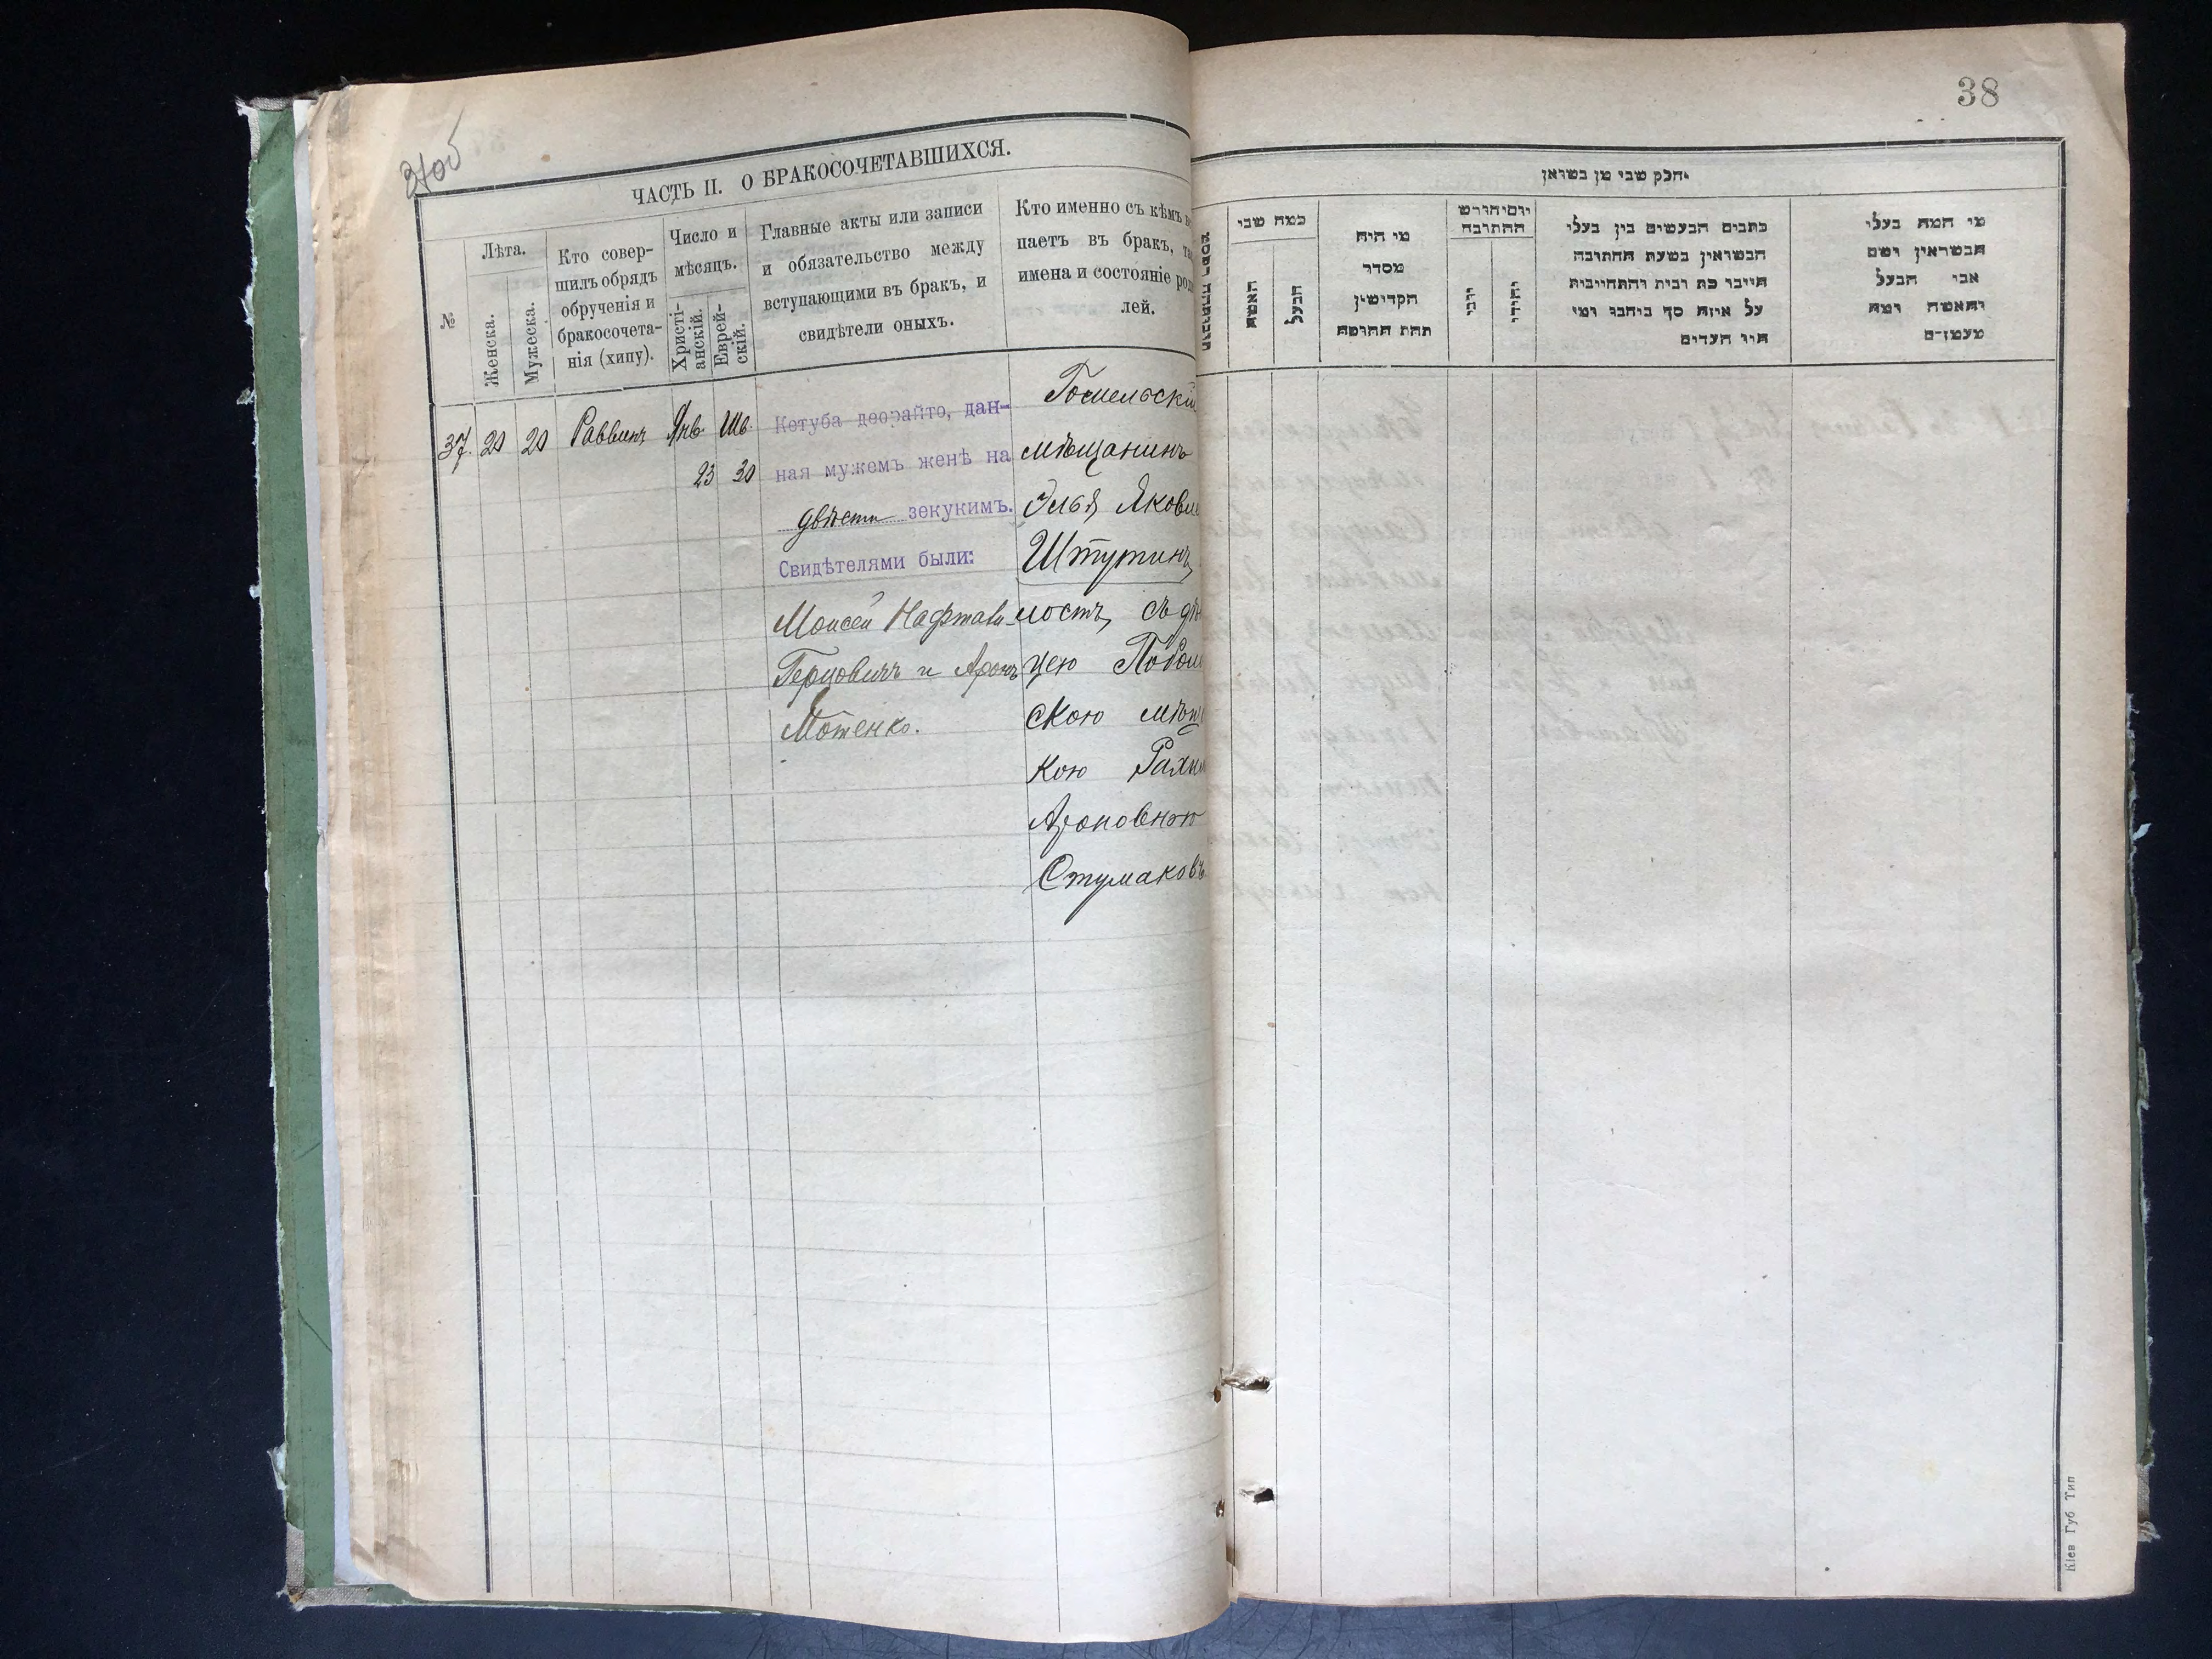 37об
ЧАСТЬ II. О БРАКОСОЧЕТАВШИХСЯ.
№
Лѣта.
Женска.
Мужеска.
Кто совер-
шилъ обрядъ
обрученія и
бракосочета-
нія (хипу).
Число и
мѣсяцъ.
Христі-
анскій.
Еврей-
скій.
Главные акты или записи
и обязательство между
вступающими въ бракъ, и
свидѣтели оныхъ.
Кто именно съ кѣмъ
паетъ въ бракъ,
имена и состояніе
лей.
37. 20 20 Раввинъ Янв. Шв.
23 30
Кетуба деорайто, дан-
ная мужемъ женѣ на
двѣсти зекукимъ.
Свидѣтелями были:
Моисей Нафтали
Герцовичъ и Аронъ
Мотенко.
Гомельскій
мѣщанинъ
Илья Яковле
Штутинъ,
лостъ, съ дѣ
цею
скою мѣщ
кою Рахил
Ароновною
Стумаковъ
38
חלק שני מן נשואין
כמה שני
האשה
הבעל
מי היה
מסדר
הקדושין
תחת החופה
יום וחודש
החתונה
יהודי
כתבים הנעשים בין בעלי
הנשואין בשעת החתונה
היינו כת ובית והתחייבות
על איזה סך ביניהם ומי
היו העדים
מי המה בעלי
הנשואין ושם
אבי הבעל
והאשה ומה
מעמדם
Кіев Губ Тип